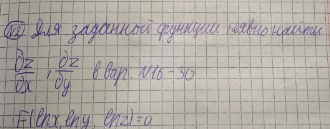 №2 Для заданной функции неявно найти
∂z/∂x, ∂z/∂y в вар. №16-30
F(lnx, lny, lnz)=0